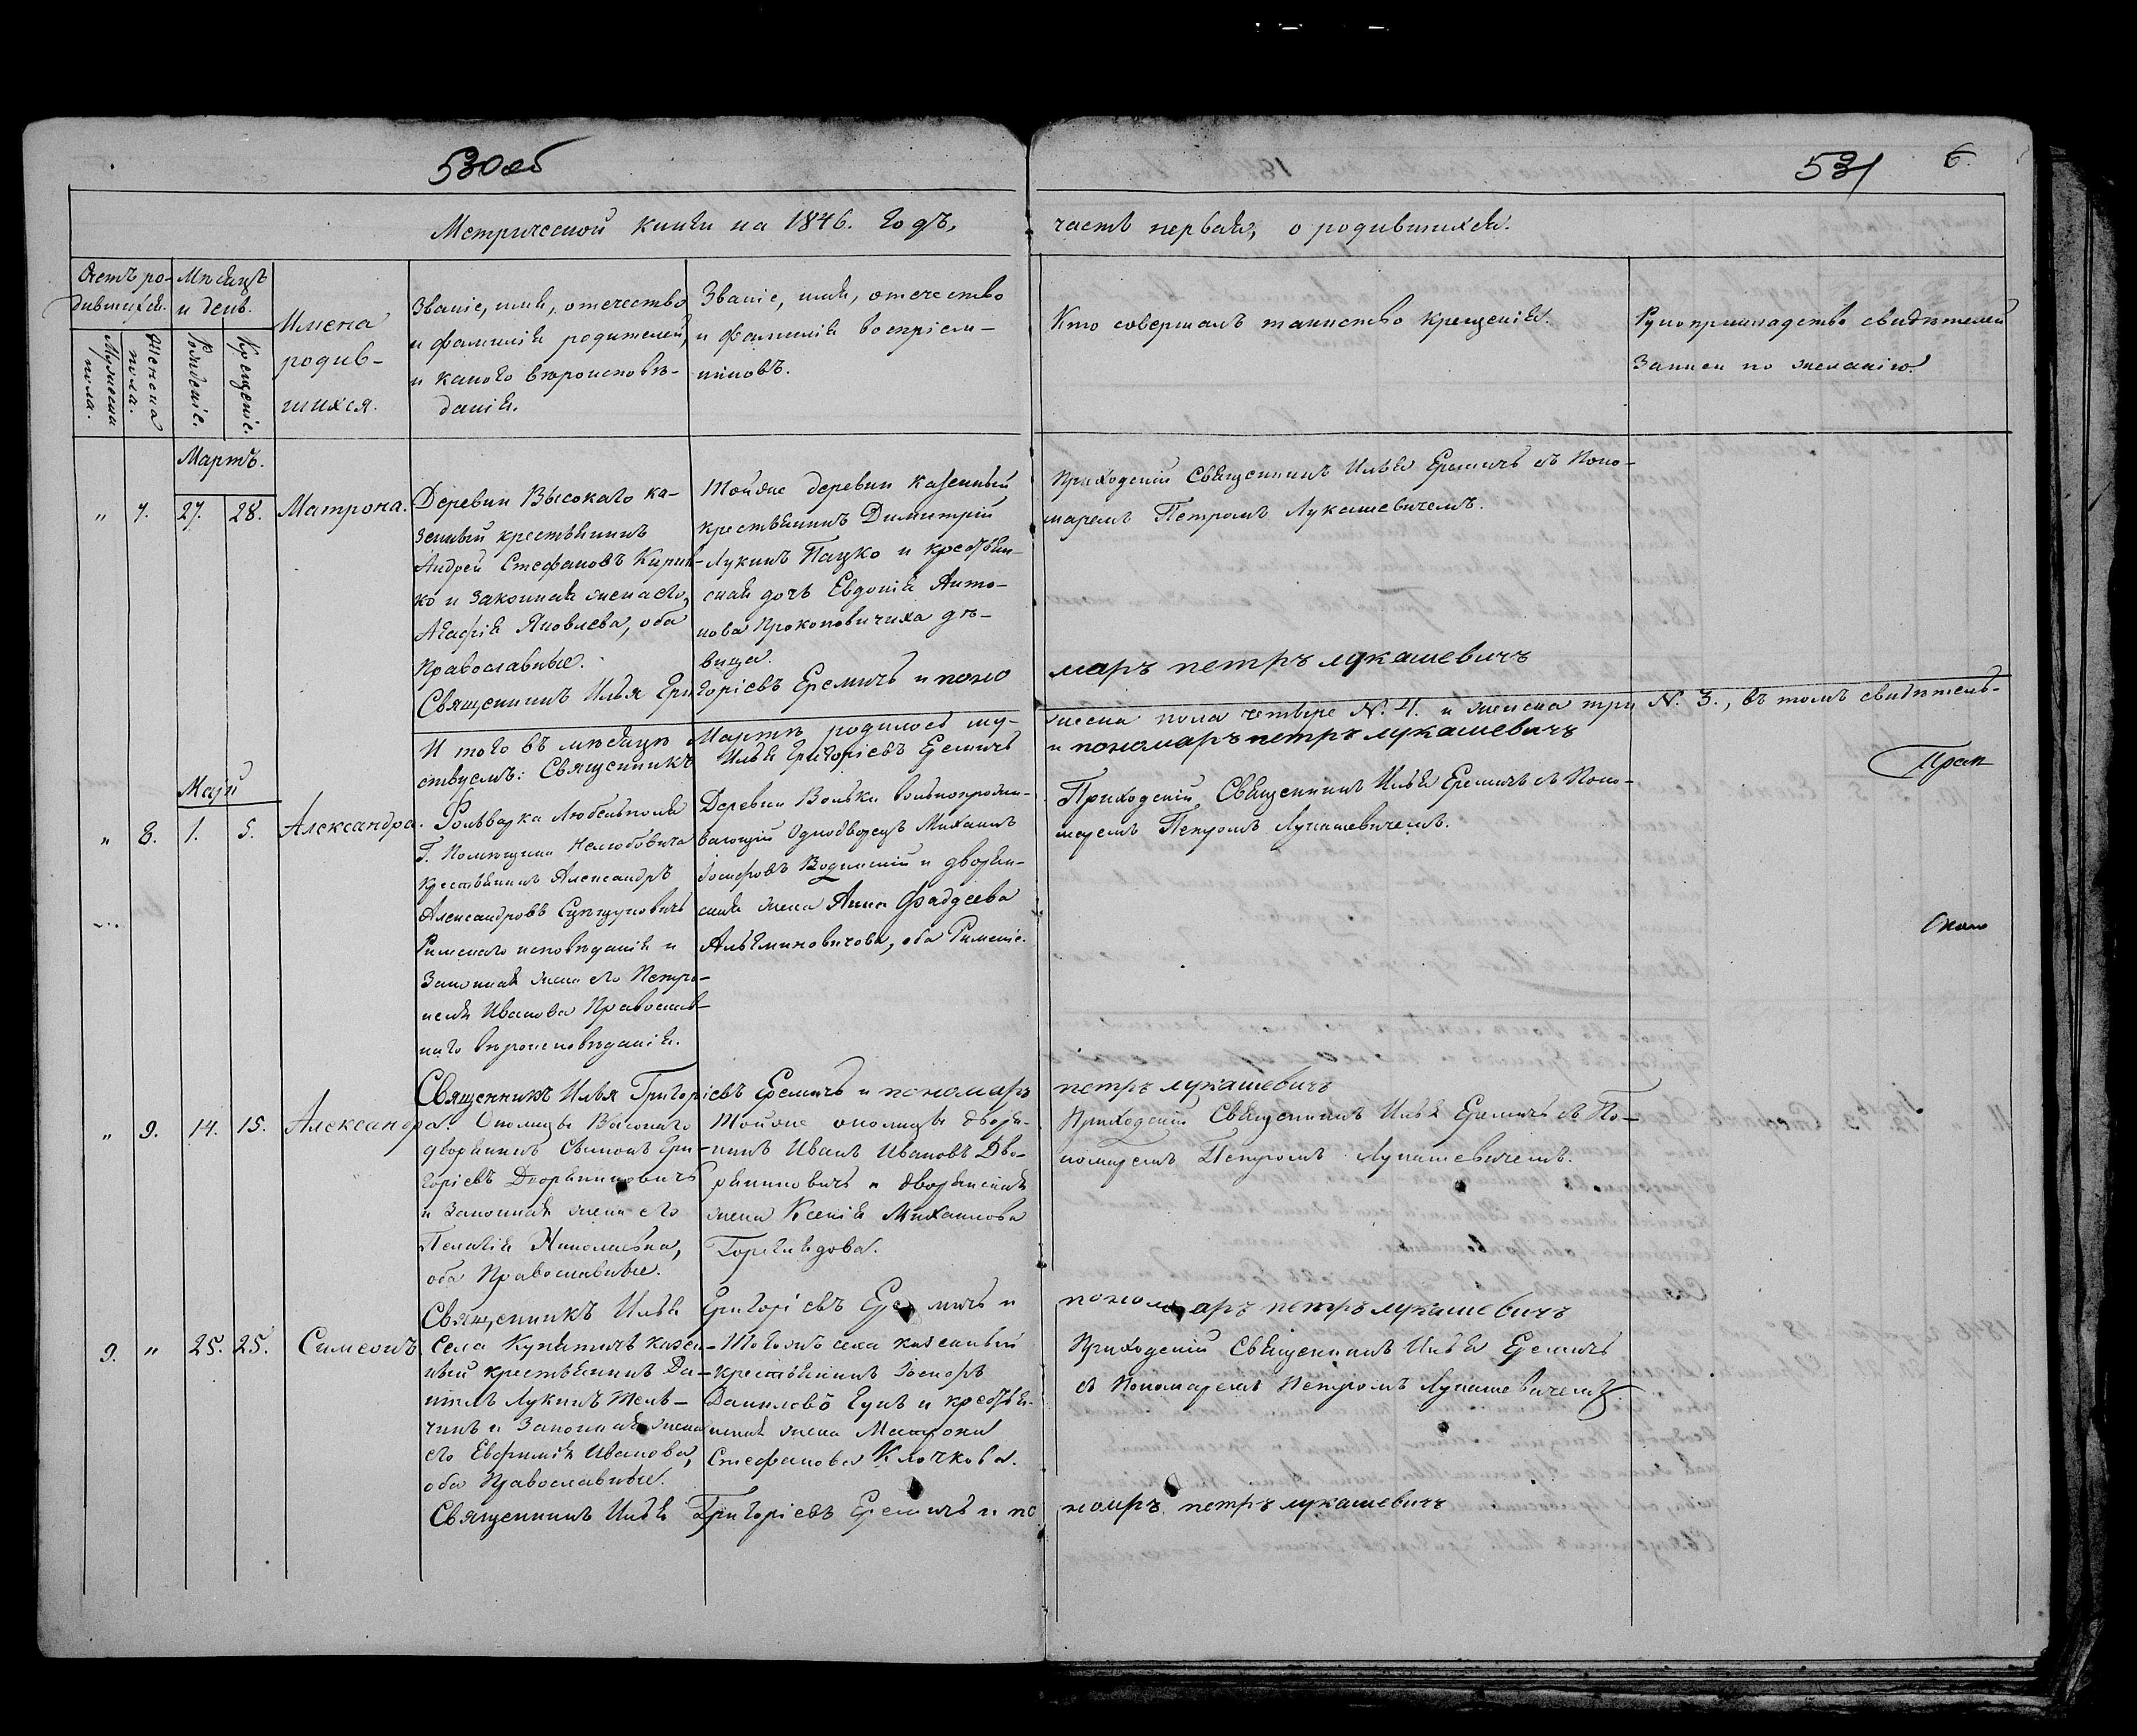 530об
531
6.
Метрической книги на 1846. годъ,
часть первая, о родившихся.
Счетъ ро-
дившихся.
Мѣсяцъ
и день.
Мужеска
пола.
Женска
пола.
Рожденіе.
Крещеніе.
Имена
родив-
шихся.
Званіе, имя, отечество
и фамилія родителей,
и какого вѣроисповѣ-
данія.
Званіе, имя, отечество
и фамилія воспріем-
никовъ.
Кто совершалъ таинство крещенія.
Рукоприкладство свидѣтелей
записи по желанію.
Мартъ.
" 7. 27. 28. Матрона.
Деревни Высокаго ка-
зенный крестьянинъ
Андрей Стефановъ
ко и законная жена его,
Агафія Яковлева, оба
Православные.
Тойже деревни казенный
крестьянинъ Димитрій
Лукинъ Пацко и крестьян-
ская дочь Евдокія Анто-
нова Прокоповичиха дѣ-
вица.
Приходскій Священникъ Илья Еремичъ съ Поно-
маремъ Петромъ Лукашевичемъ.
Священникъ Илья Григоріевъ Еремичъ и поно
маръ петръ лукашевичъ
И того въ мѣсяцѣ Мартѣ родилось му-
жеска пола четыре N. 4. и женска три N. 3., въ томъ свидѣтель-
ствуемъ: Священникъ Илья Григоріевъ Еремичъ
и пономаръ петръ лукашевичъ
Маій
" 8. 1. 5. Александра.
Фольварка
Г. Помѣщика Нелюбовича
крестьянинъ Александръ
Александровъ
Римскаго исповѣданія и
Законная жена его Петро-
неля Иванова Православ-
наго вѣроисповѣданія.
Деревни Вольки вольнопрожи-
вающій Однодворецъ Михаилъ
Іосифовъ и дворян-
ская жена Анна Фадѣева
оба Римскіе.
Приходскій Священникъ Илья Еремичъ съ Поно-
маремъ Петромъ Лукашевичемъ.
Священникъ Илья Григоріевъ Еремичъ и пономаръ
петръ лукашевичъ
" 9. 14. 15. Александра.
Околицы Высокаго
дворянинъ Симонъ Гри-
горіевъ Дворяниновичъ
и Законная жена его
Пелагія Николаевна,
оба Православные.
Тойже околицы дворя-
нинъ Иванъ Ивановъ Дво-
ряниновичъ и дворянская
жена Ксенія Михаилова
Приходскій Священникъ Илья Еремичъ съ По-
номаремъ Петромъ Лукашевичемъ.
Священникъ Илья Григоріевъ Еремичъ и
пономаръ петръ лукашевичъ
9. " 25. 25. Симеонъ.
Села Купятичъ казен-
ный крестьянинъ Да-
ніилъ Лукинъ
и Законная жена
его Евфимія Иванова,
оба Православные.
Тогожъ села казенный
крестьянинъ
Даниловъ и крестьян-
ская жена Матрона
Стефанова Клочкова.
Приходскій Священникъ Илья Еремичъ
съ Пономаремъ Петромъ Лукашевичемъ
Священникъ Илья Григоріевъ Еремичъ и по
номръ петръ лукашевичъ